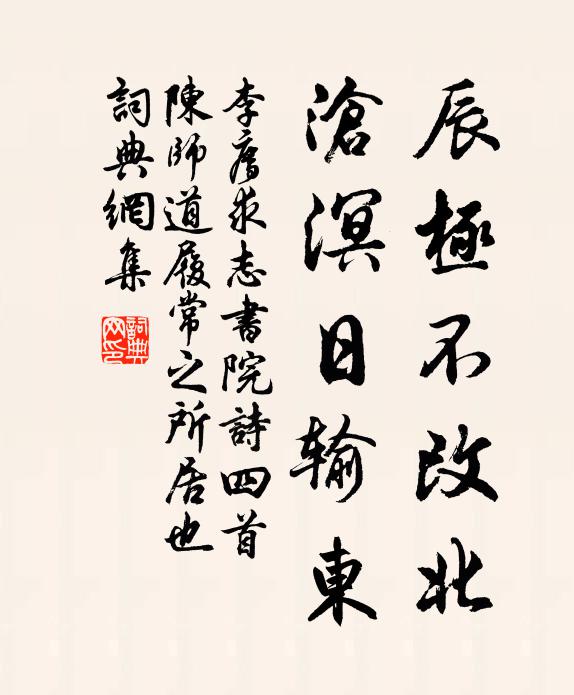 辰極不改北
滄溟日輸東
李廌求志書院詩四首
陳師道履常之所居也
詞典網集
詞典网印